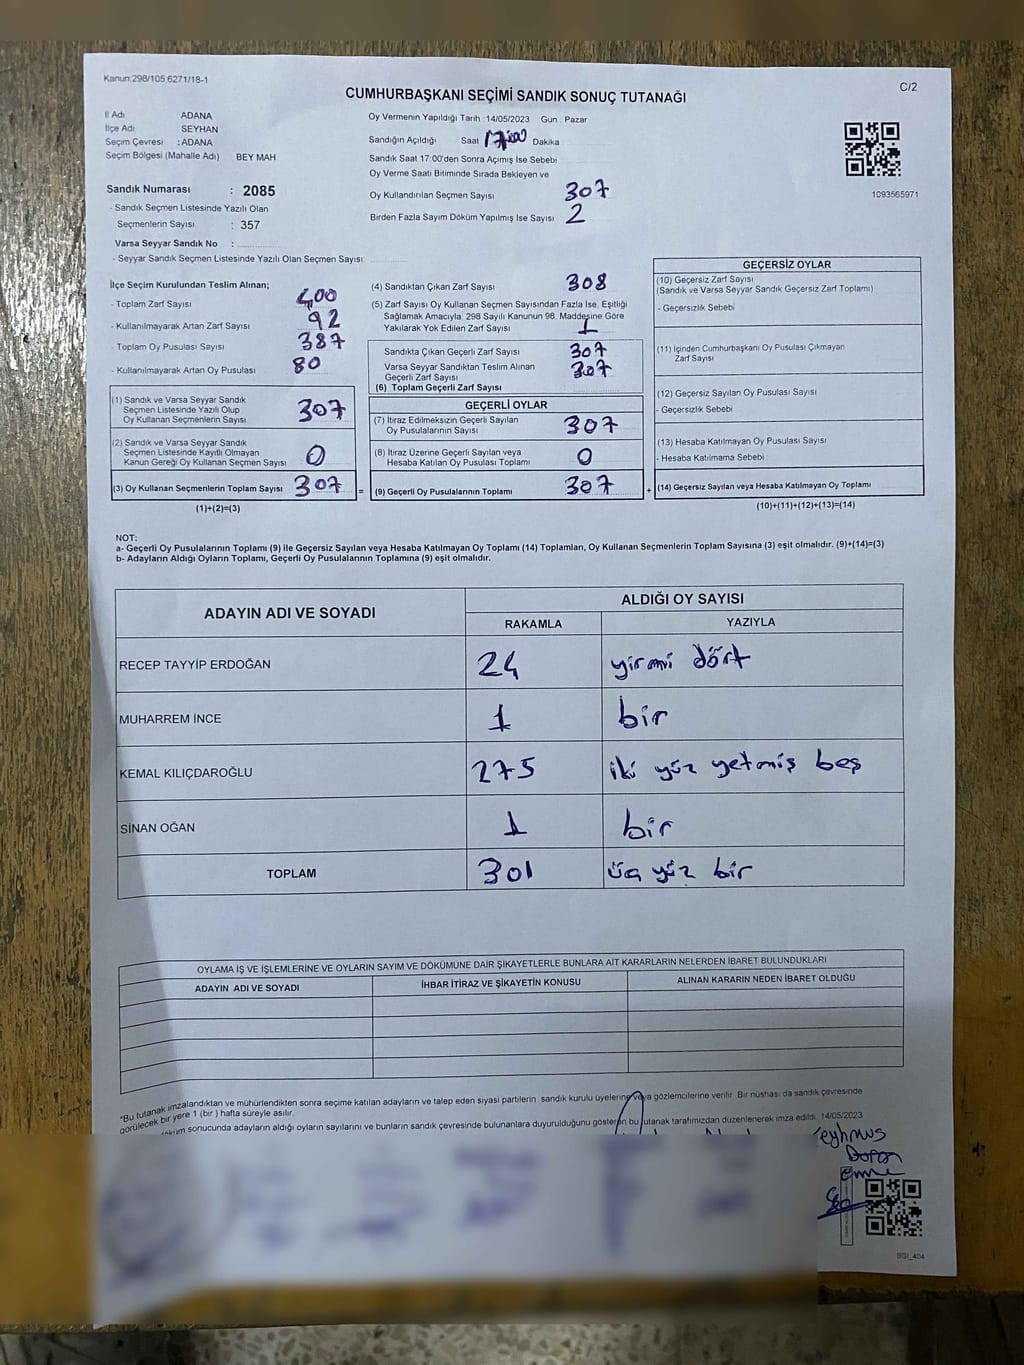 Kanun:298/105 6271/18-1
C/2
CUMHURBAŞKANI SEÇİMİ SANDIK SONUÇ TUTANAĞI
İl Adı ADANA
İlçe Adı SEYHAN
Seçim Çevresi : ADANA
Seçim Bölgesi (Mahalle Adı) BEY MAH
Oy Vermenin Yapıldığı Tarih :14/05/2023 Gün : Pazar
Sandığın Açıldığı Saat Dakika
Sandık Saat 17:00'den Sonra Açımış İse Sebebi
Oy Verme Saati Bitiminde Sırada Bekleyen ve
Oy Kullandırılan Seçmen Sayısı 307
Birden Fazla Sayım Döküm Yapılmış İse Sayısı 2
1093565971
Sandık Numarası : 2085
- Sandık Seçmen Listesinde Yazılı Olan
Seçmenlerin Sayısı : 357
Varsa Seyyar Sandık No :
- Seyyar Sandık Seçmen Listesinde Yazılı Olan Seçmen Sayısı:
İlçe Seçim Kurulundan Teslim Alınan;
- Toplam Zarf Sayısı 400
- Kullanılmayarak Artan Zarf Sayısı 92
- Toplam Oy Pusulası Sayısı 387
- Kullanılmayarak Artan Oy Pusulası 80
(1) Sandık ve Varsa Seyyar Sandık
Seçmen Listesinde Yazılı Olup
Oy Kullanan Seçmenlerin Sayısı 307
(2) Sandık ve Varsa Seyyar Sandık
Seçmen Listesinde Kayıtlı Olmayan
Kanun Gereği Oy Kullanan Seçmen Sayısı 0
(3) Oy Kullanan Seçmenlerin Toplam Sayısı 307 =
(1)+(2)=(3)
(4) Sandıktan Çıkan Zarf Sayısı 308
(5) Zarf Sayısı Oy Kullanan Seçmen Sayısından Fazla İse, Eşitliği
Sağlamak Amacıyla, 298 Sayılı Kanunun 98. Maddesine Göre
Yakılarak Yok Edilen Zarf Sayısı 1
Sandıkta Çıkan Geçerli Zarf Sayısı 307
Varsa Seyyar Sandıktan Teslim Alınan
Geçerli Zarf Sayısı 307
(6) Toplam Geçerli Zarf Sayısı
GEÇERLİ OYLAR
(7) İtiraz Edilmeksizin Geçerli Sayılan
Oy Pusulalarının Sayısı 307
(8) İtiraz Üzerine Geçerli Sayılan veya
Hesaba Katılan Oy Pusulası Toplamı 0
(9) Geçerli Oy Pusulalarının Toplamı 307 +
GEÇERSİZ OYLAR
(10) Geçersiz Zarf Sayısı
(Sandık ve Varsa Seyyar Sandık Geçersiz Zarf Toplamı)
- Geçersizlik Sebebi
(11) İçinden Cumhurbaşkanı Oy Pusulası Çıkmayan
Zarf Sayısı
(12) Geçersiz Sayılan Oy Pusulası Sayısı
- Geçersizlik Sebebi
(13) Hesaba Katılmayan Oy Pusulası Sayısı
- Hesaba Katılmama Sebebi
(14) Geçersiz Sayılan veya Hesaba Katılmayan Oy Toplamı
(10)+(11)+(12)+(13)=(14)
NOT:
a- Geçerli Oy Pusulalarının Toplamı (9) ile Geçersiz Sayılan veya Hesaba Katılmayan Oy Toplamı (14) Toplamları, Oy Kullanan Seçmenlerin Toplam Sayısına (3) eşit olmalıdır. (9)+(14)=(3)
b- Adayların Aldığı Oyların Toplamı, Geçerli Oy Pusulalarının Toplamına (9) eşit olmalıdır.
ADAYIN ADI VE SOYADI
ALDIĞI OY SAYISI
RAKAMLA YAZIYLA
RECEP TAYYİP ERDOĞAN 24 yirmi dört
MUHARREM İNCE 1 bir
KEMAL KILIÇDAROĞLU 275 iki yüz yetmiş beş
SİNAN OĞAN 1 bir
TOPLAM 301 üç yüz bir
OYLAMA İŞ VE İŞLEMLERİNE VE OYLARIN SAYIM VE DÖKÜMÜNE DAİR ŞİKAYETLERLE BUNLARA AİT KARARLARIN NELERDEN İBARET BULUNDUKLARI
ADAYIN ADI VE SOYADI İHBAR İTİRAZ VE ŞİKAYETİN KONUSU ALINAN KARARIN NEDEN İBARET OLDUĞU
*Bu tutanak imzalandıktan ve mühürlendikten sonra seçime katılan adayların ve talep eden siyasi partilerin sandık kurulu üyelerine veya gözlemcilerine verilir. Bir nüshası da sandık çevresinde
görülecek bir yere 1 (bir ) hafta süreyle asılır.
sonucunda adayların aldığı oyların sayılarını ve bunların sandık çevresinde bulunanlara duyurulduğunu gösteren bu tutanak tarafımızdan düzenlenerek imza edildi. 14/05/2023